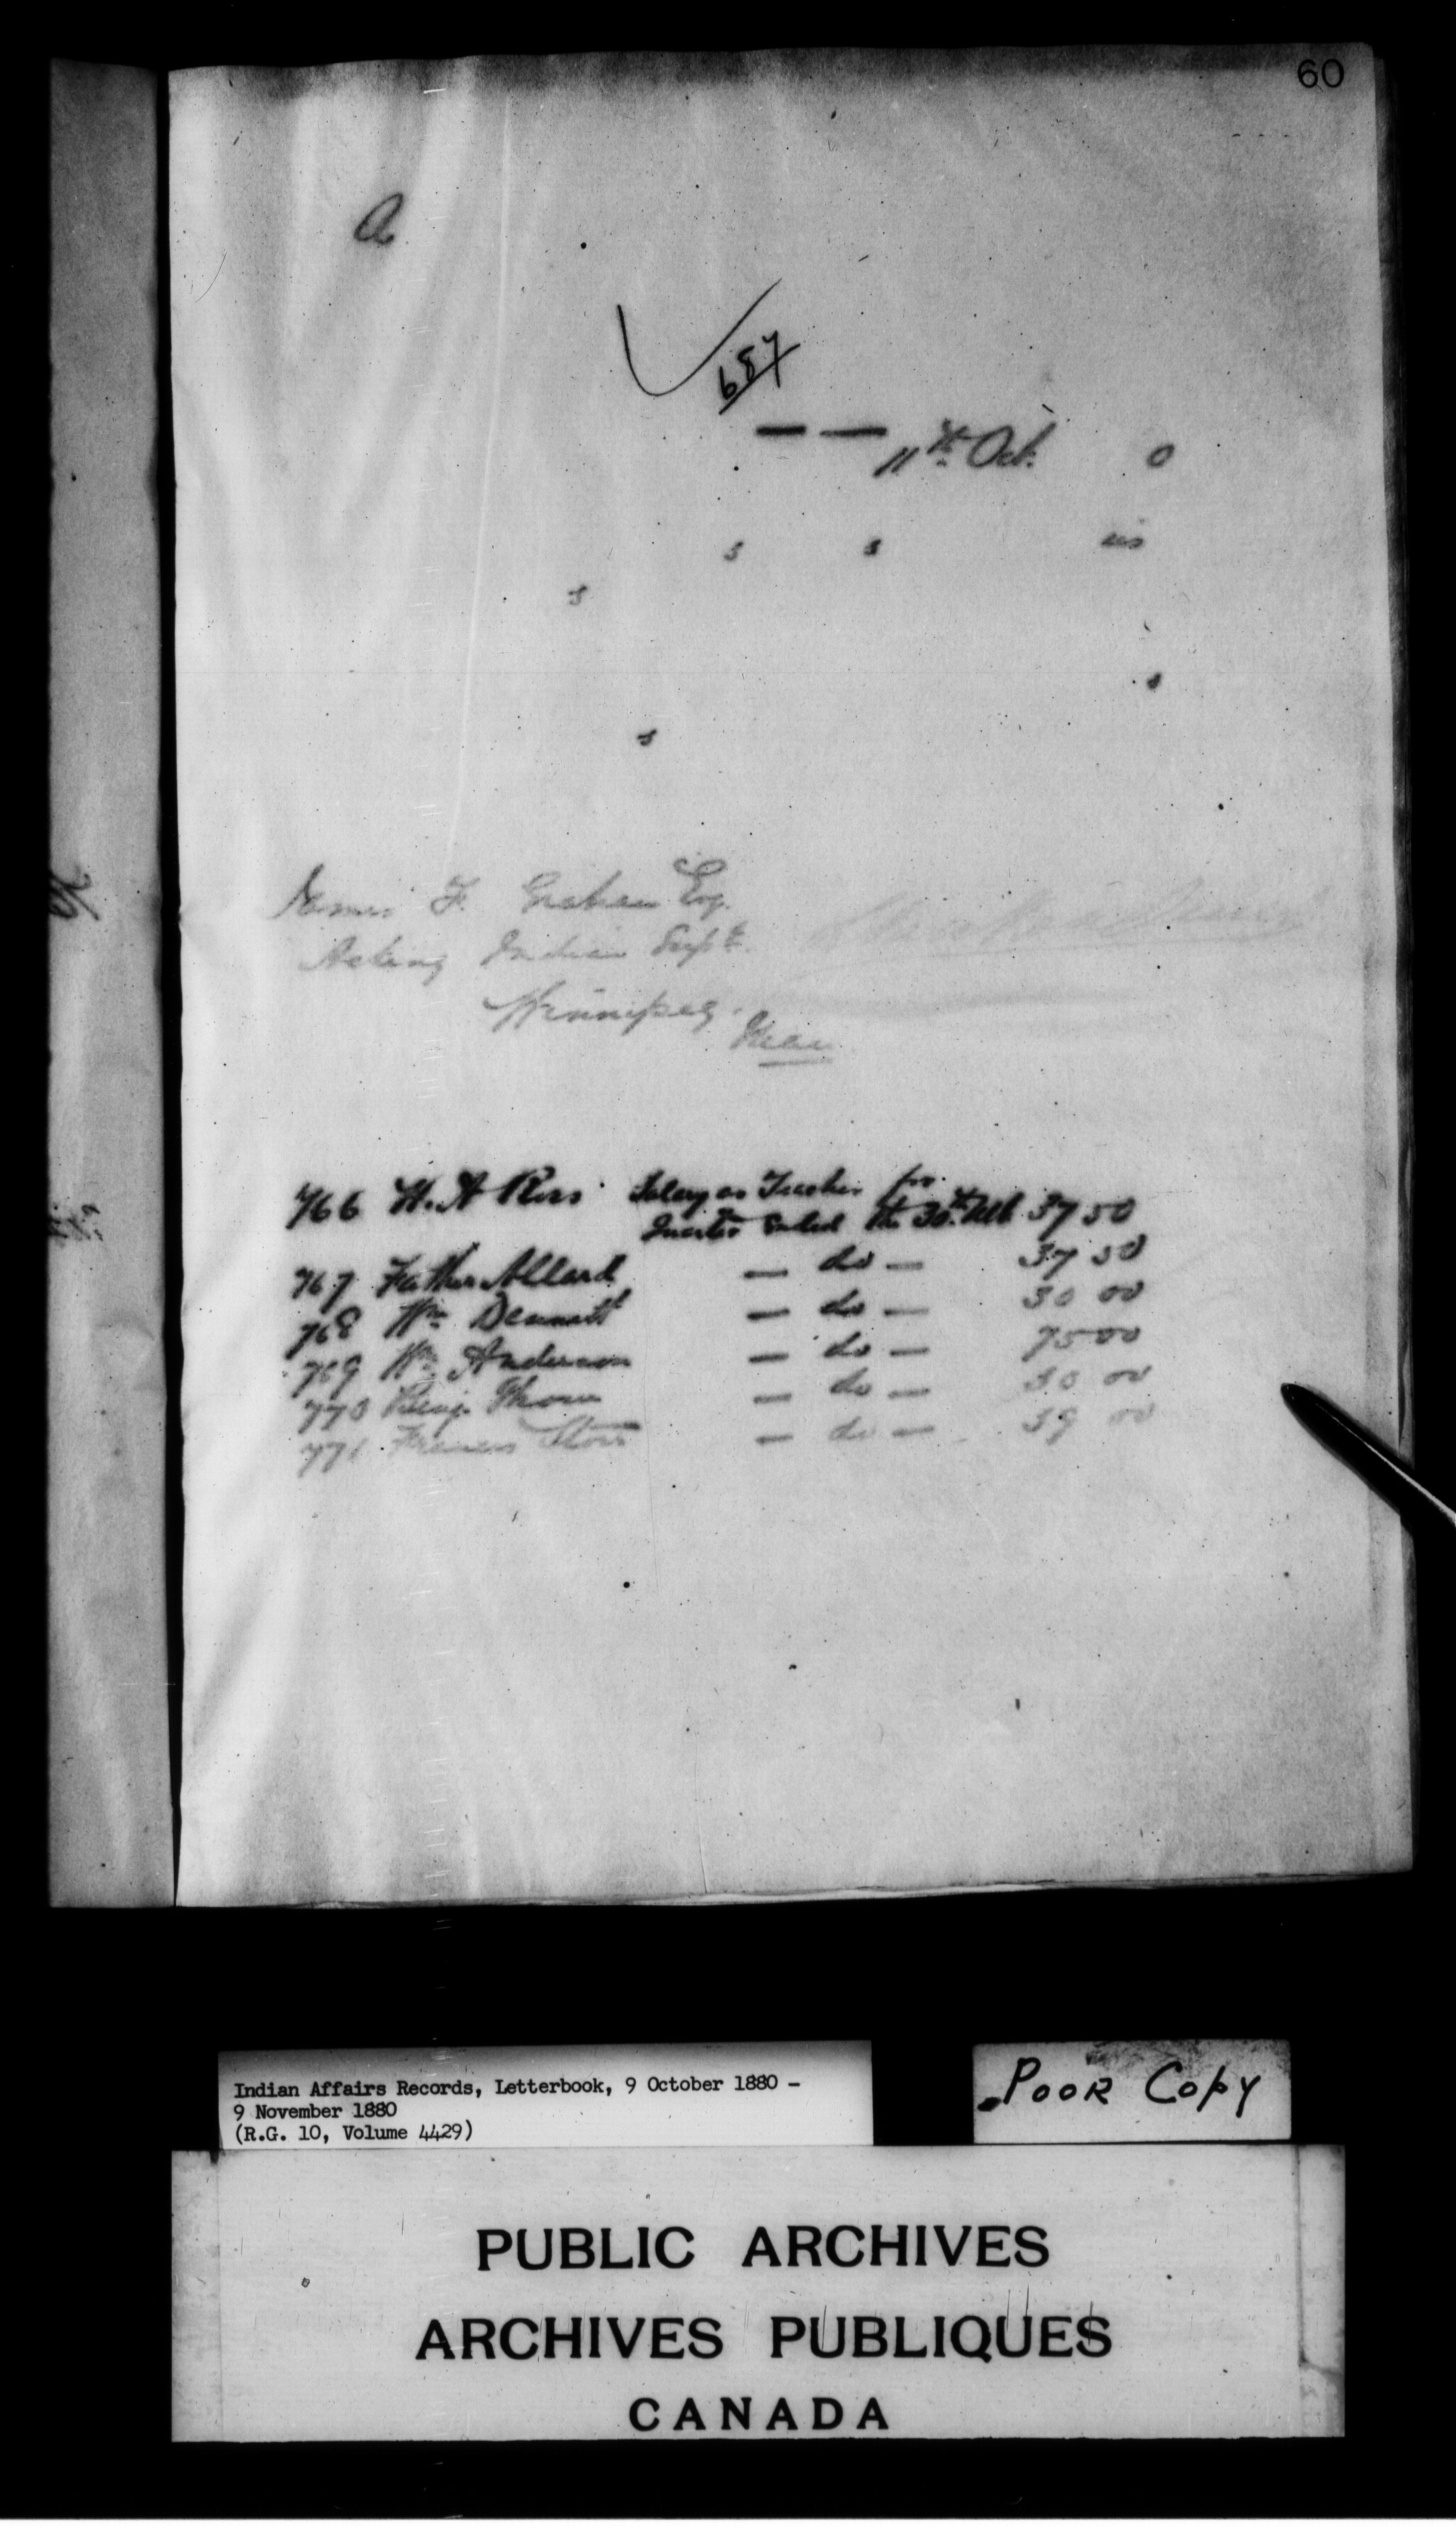 60
a
687
— — 11th Oct. 0
s s us
s
s
s
James F. Graham Esq.
Acting Indian Supt.
Winnipeg.
766 H. A Ross Salary as Teacher for
Quarter Ended the 30th Ult 37 50
767 Father Allard — do — 37 50
768 Wm Dennett — do — 30 00
769 Wm Anderson — do — 75 00
770 Benj. — do — 30 00
771 Francis Storr — do — 39 00
Indian Affairs Records, Letterbook, 9 October 1880 -
9 November 1880
(R.G. 10, Volume 4429)
POOR COPY
PUBLIC ARCHIVES
ARCHIVES PUBLIQUES
CANADA